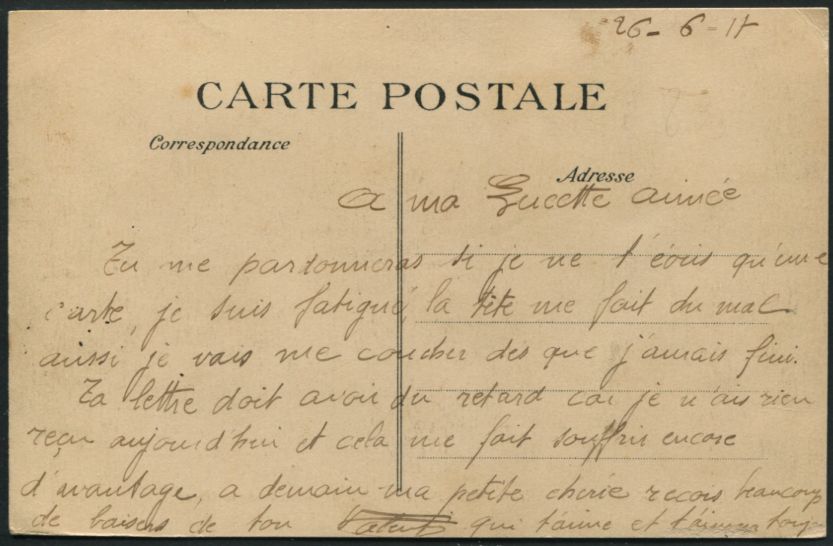 26 - 6 - 11
CARTE POSTALE
Correspondance
Adresse
A ma Lucette aimée
Tu me pardonneras si je ne t'écris qu'une
carte, je suis fatigué, la tête me fait du mal
aussi je vais me coucher des que j'aurais fini.
Ta lettre doit avoir du retard car je n'ais rien
reçu aujourd'hui et cela me fait souffrir encore
d'avantage, a demain ma petite cherie recois beaucoup
de baisers de ton qui t'aime et t'aimera touj